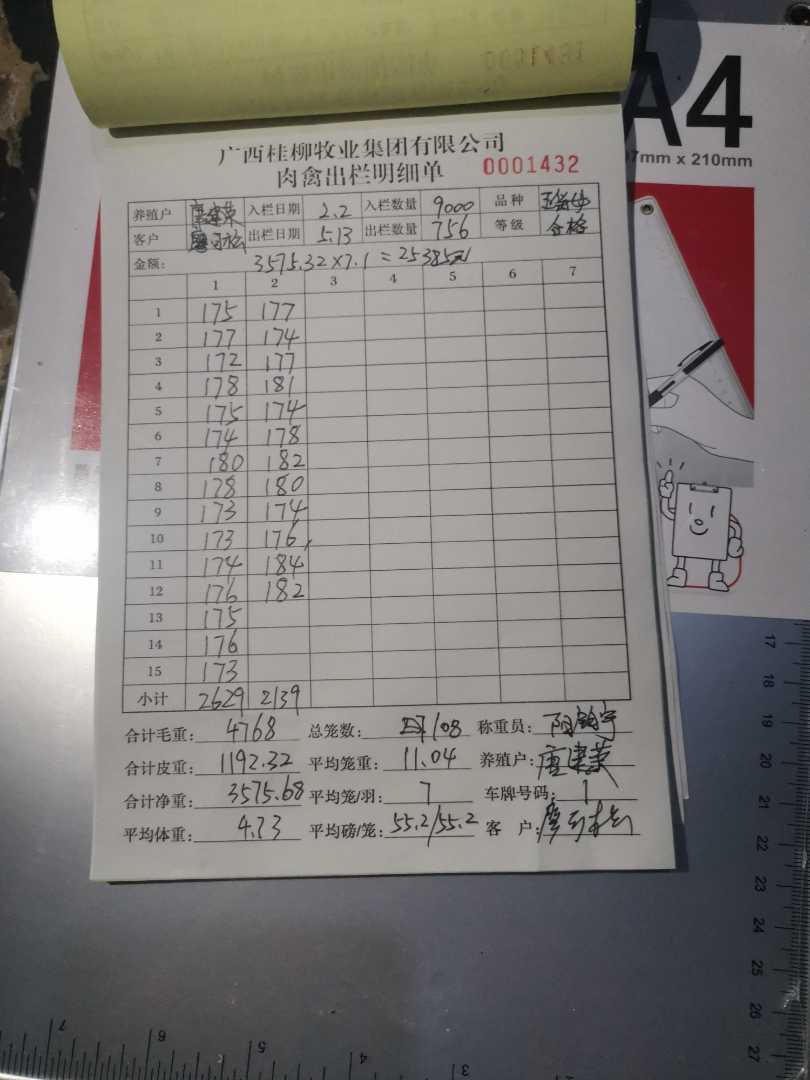 A4
7mm x 210mm
广西桂柳牧业集团有限公司
肉禽出栏明细单 0001432
养殖户 唐建荣 入栏日期 2.2 入栏数量 9000 品种
客户 出栏日期 5.13 出栏数量 756 等级 合格
金额: 3575.32×7.1=25385元
1 2 3 4 5 6 7
1 175 177
2 177 174
3 172 177
4 178 181
5 175 174
6 174 178
7 180 182
8 178 180
9 173 174
10 173 176
11 174 184
12 176 182
13 175
14 176
15 173
小计 2629 2139
合计毛重: 4768 总笼数: 108 称重员:
合计皮重: 1192.32 平均笼重: 11.04 养殖户: 唐建荣
合计净重: 3575.68 平均笼/羽: 7 车牌号码: 1
平均体重: 4.73 平均磅/笼: 55.2/55.2 客 户:
17
18
19
20
21
22
23
24
25
26
27
7 6 5 4 3